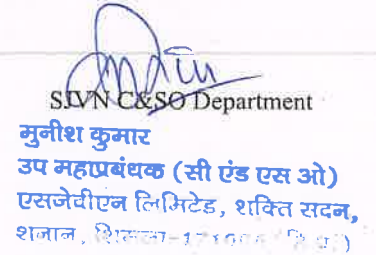 SJVN C&SO Department
मुनीश कुमार
उप महाप्रबंधक (सी एंड एस ओ)
एसजेवीएन लिमिटेड, शक्ति सदन,
शनान, शिमला-17